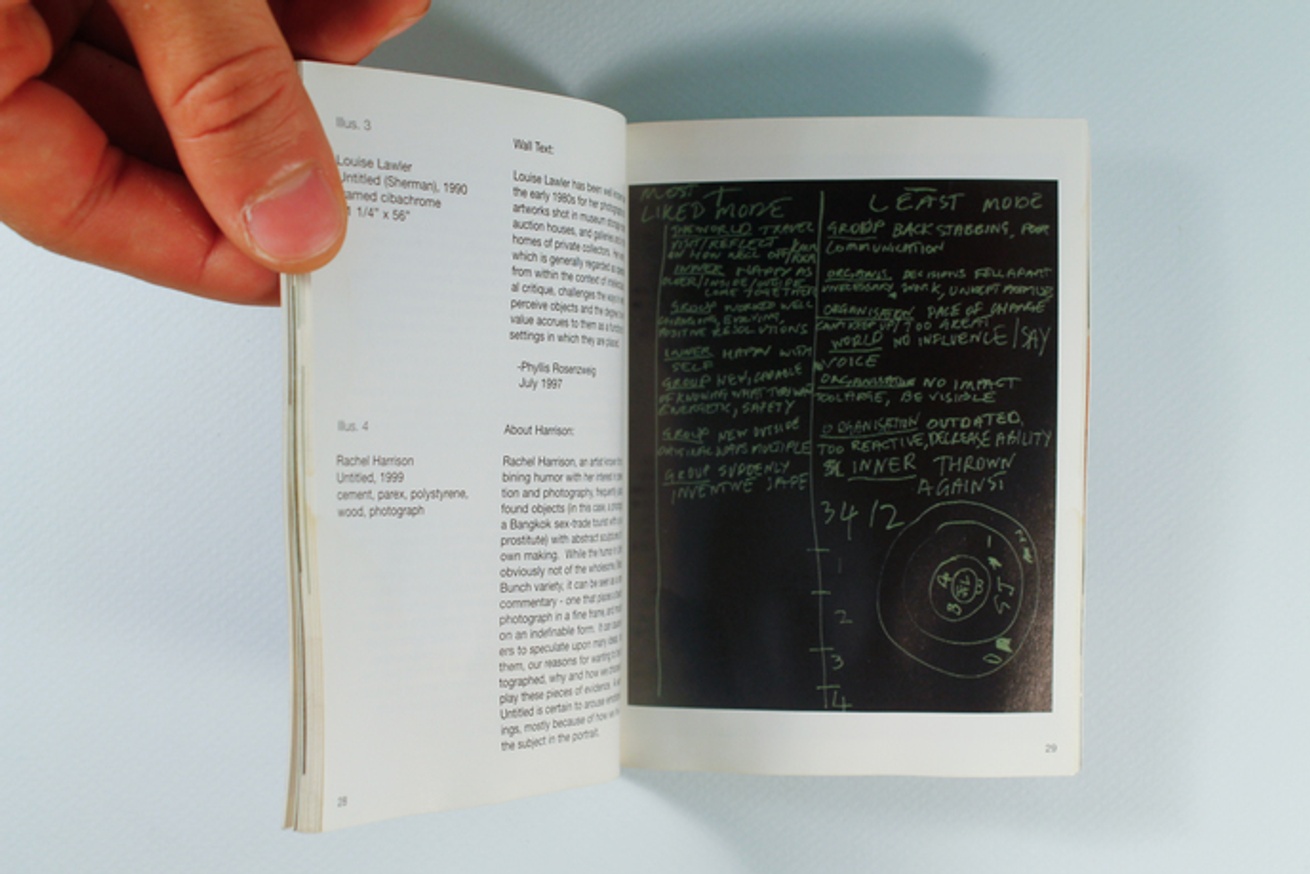 Illus. 3
Louise Lawler
Untitled (Sherman), 1990
framed cibachrome
1/4" x 56"
Illus. 4
Rachel Harrison
Untitled, 1999
cement, parex, polystyrene,
wood, photograph
28
Wall Text:
Louise Lawler has been well
the early 1980s for her
artworks shot in museum
auction houses, and galleries
homes of private collectors.
which is generally regarded as
from within the context of
al critique, challenges the
perceive objects and the
value accrues to them as a
settings in which they are placed.
-Phyllis Rosenzweig
July 1997
About Harrison:
Rachel Harrison, an artist known
bining humor with her interest in
tion and photography, frequently
found objects (in this case, a
a Bangkok sex-trade tourist with
prostitute) with abstract
own making. While the
obviously not of the wholesome
Bunch variety, it can be seen as
commentary - one that places a
photograph in a fine frame, and
on an indefinable form. It can
ers to speculate upon many
them, our reasons for wanting
tographed, why and how we
play these pieces of evidence.
Untitled is certain to arouse
ings, mostly because of how we
the subject in the portrait.
MOST +
LIKED MODE
WORLD TRAVEL
VISIT/REFLECT
ON HOW WELL OFF
INNER HAPPY AS
OLDER/INSIDE/OUTSIDE
COME TOGETHER
GROUP WORKED WELL
CHANGING, EVOLVING,
POSITIVE RESOLUTIONS
INNER HAPPY WITH
SELF
GROUP NEW, CAPABLE
OF KNOWING WHAT
ENERGETIC, SAFETY
GROUP NEW OUTSIDE
ORIGINAL WAYS MULTIPLE
GROUP SUDDENLY
INVENTIVE SAFE
LEAST MODE
GROUP BACK STABBING, POOR
COMMUNICATION
ORGANIS. DECISIONS FELL APART
UNNECESSARY WORK,
ORGANISATION PACE OF CHANGE
CANT KEEP UP/TOO GREAT
WORLD NO INFLUENCE/SAY
VOICE
ORGANISATION NO IMPACT
TOO LARGE, BE VISIBLE
ORGANISATION OUTDATED,
TOO REACTIVE, DECREASE ABILITY
INNER THROWN
AGAINST
34/2
1
2
3
4
29